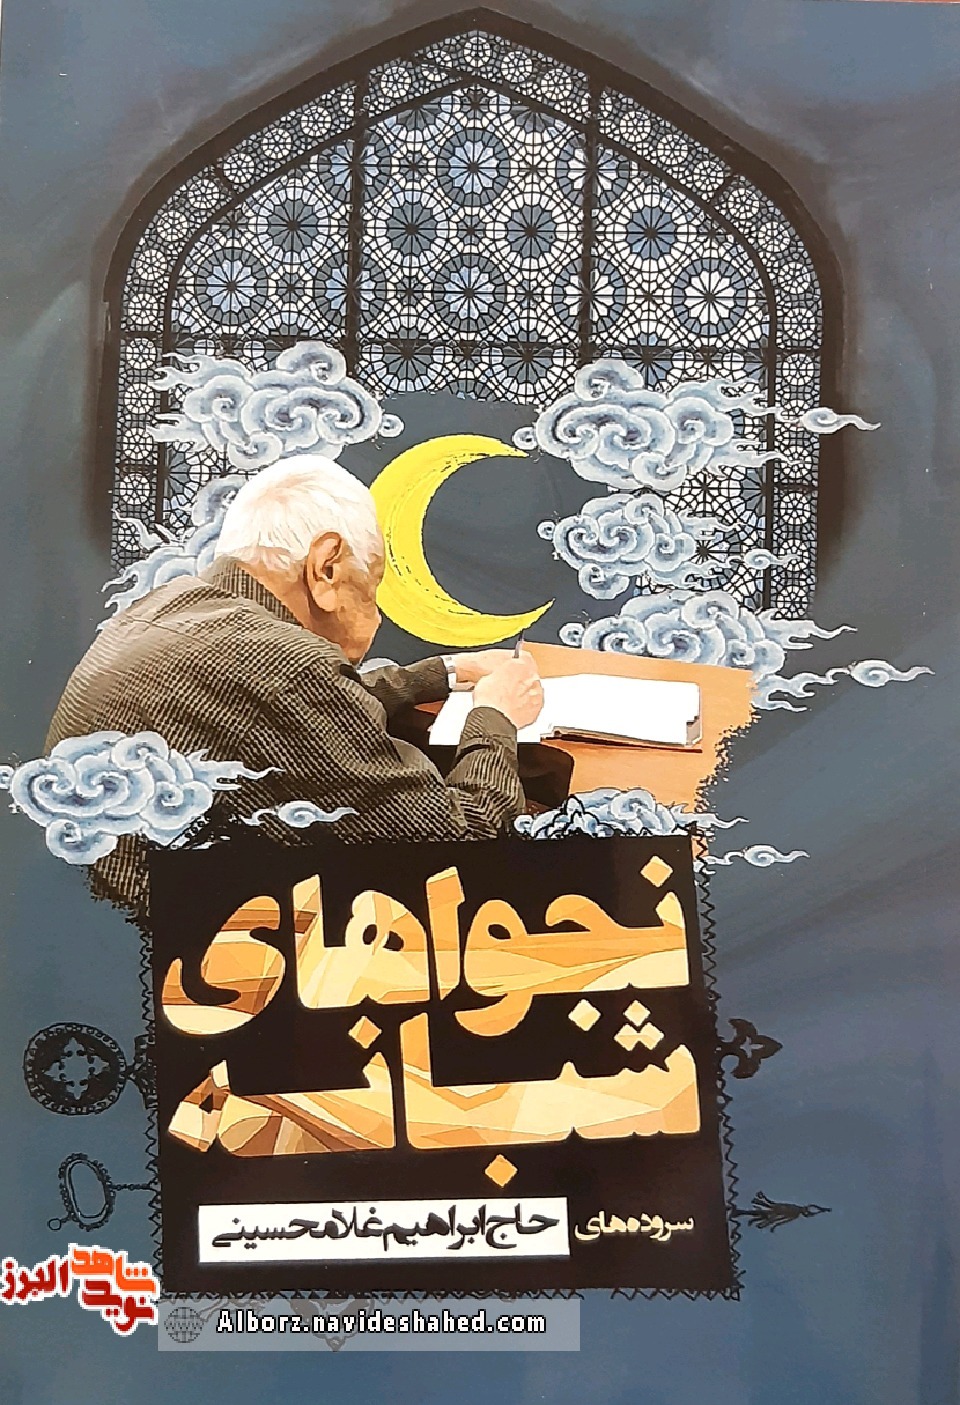 نجواهای
شبانه
سروده‌های حاج ابراهیم غلامحسینی
نوید شاهد البرز
Alborz.navideshahed.com